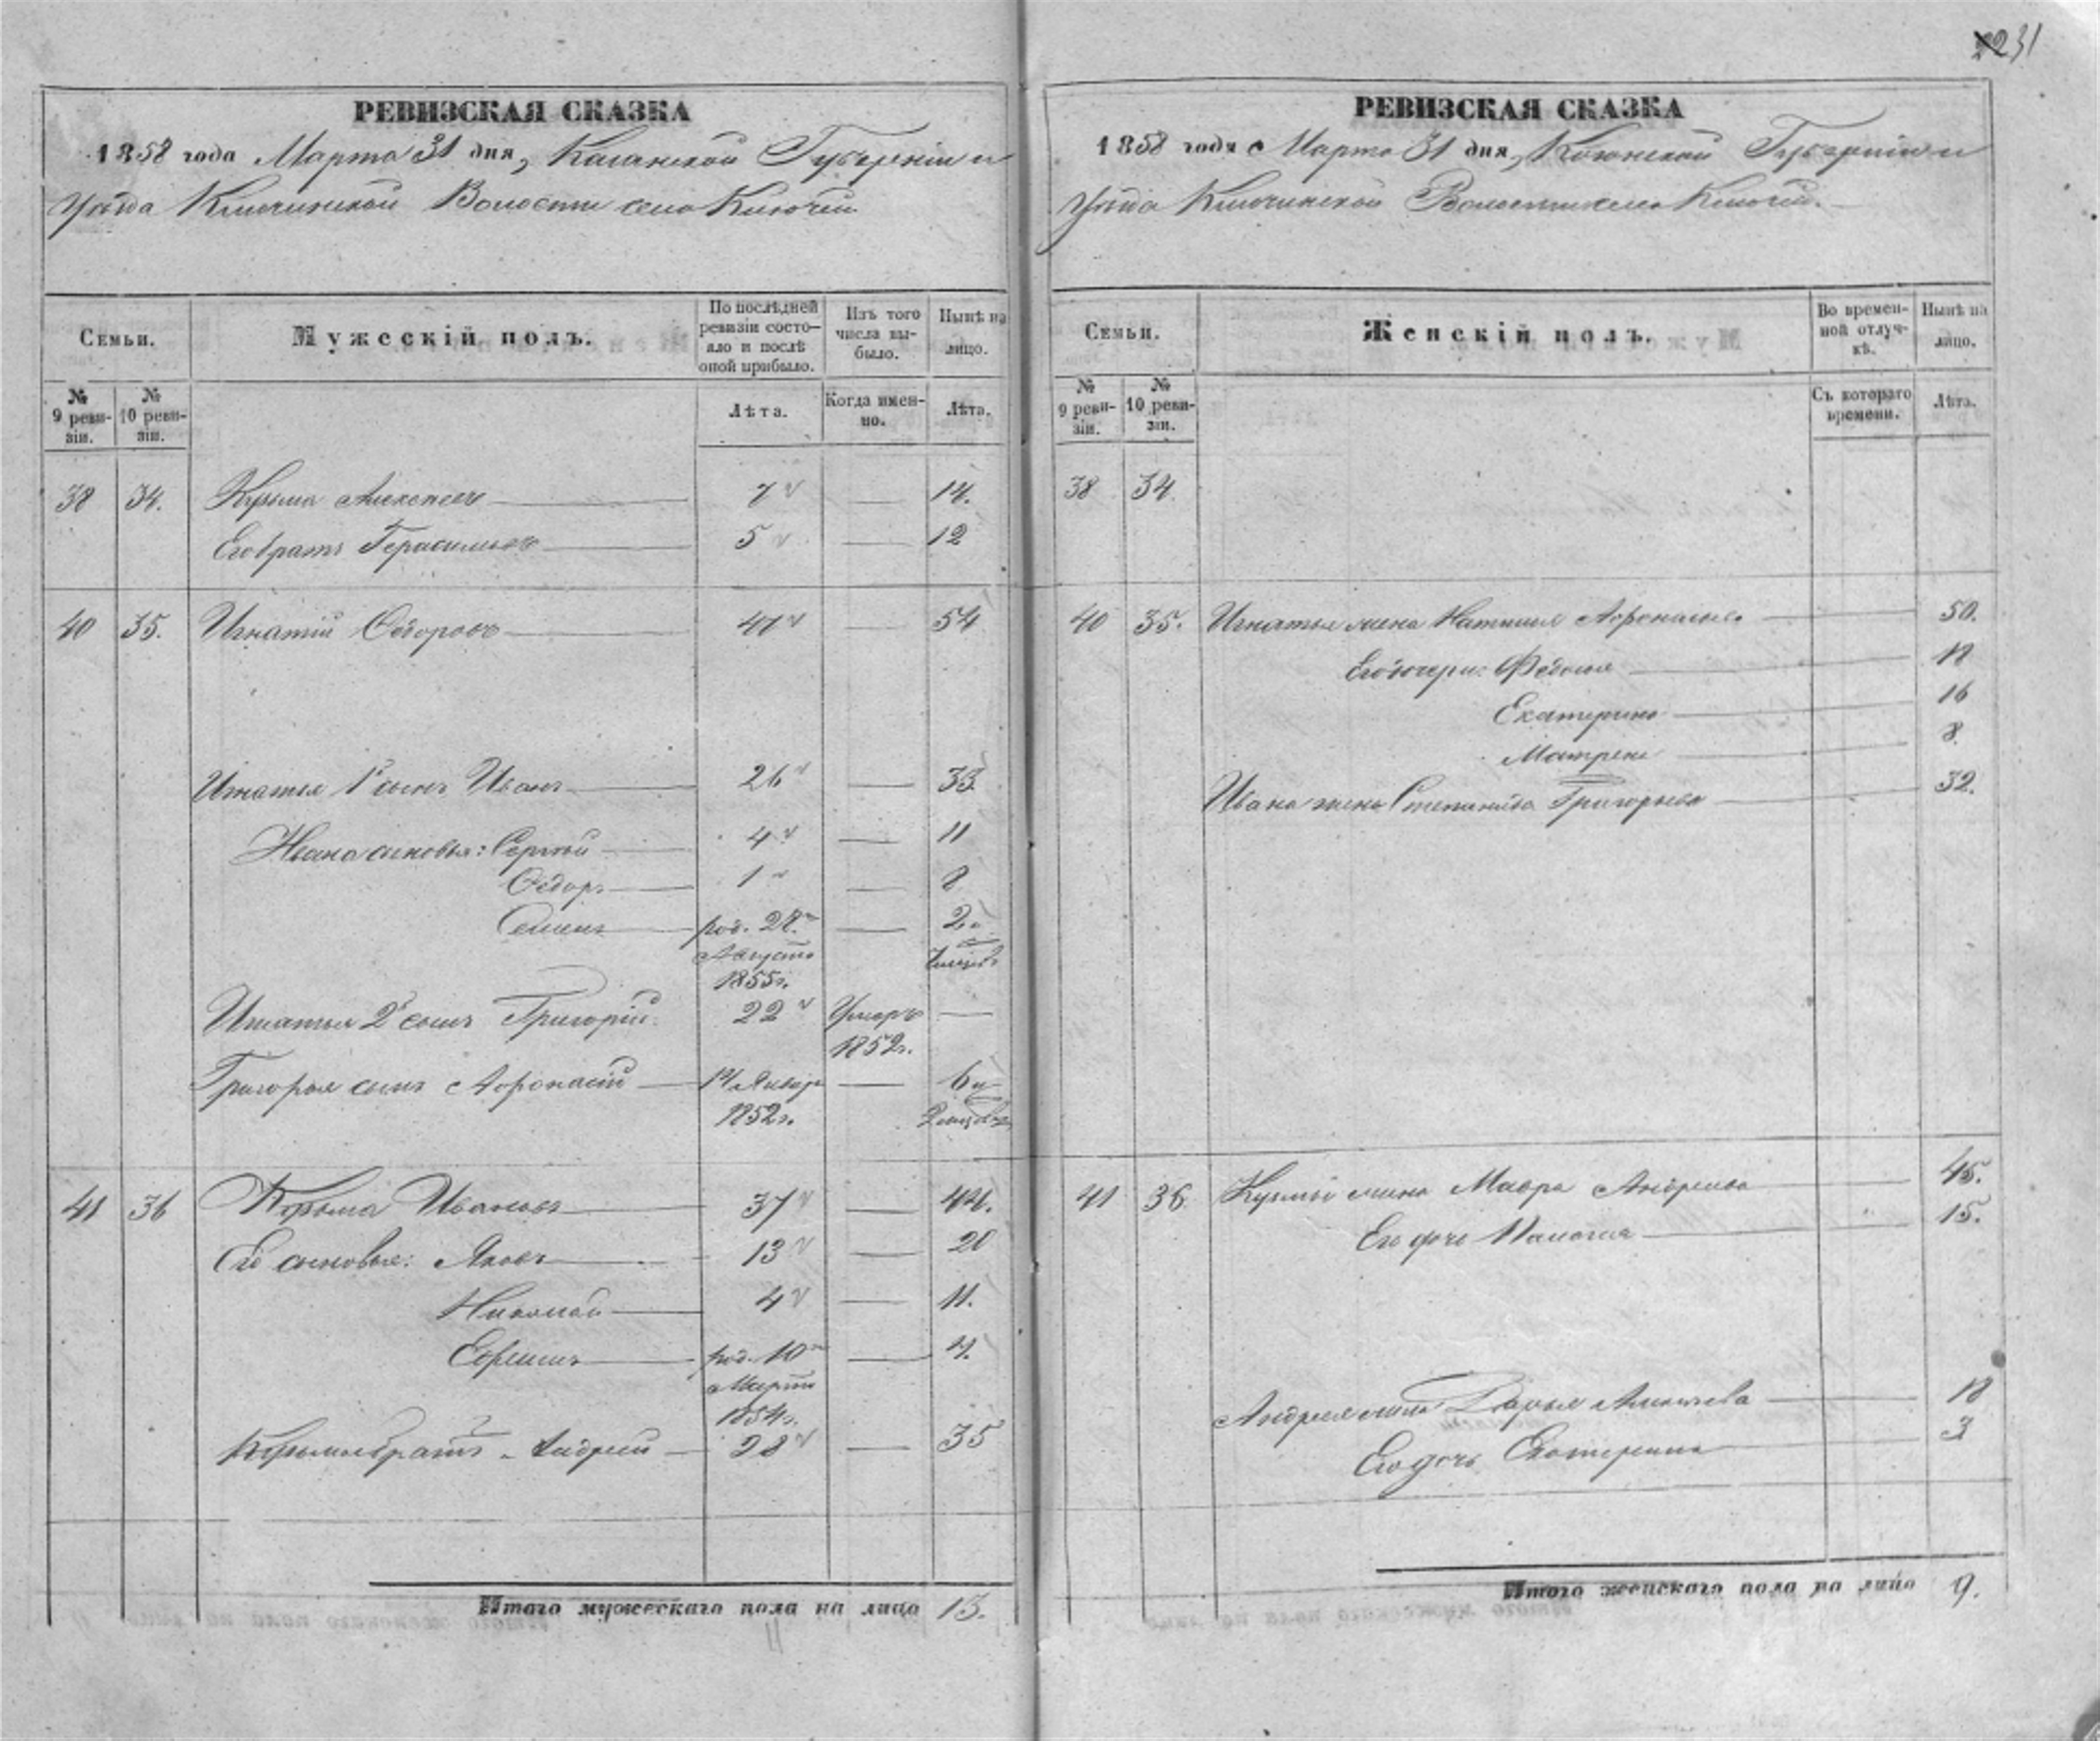 231
РЕВИЗСКАЯ СКАЗКА
1858 года Марта 31 дня, Казанской Губерніи и
уѣзда Ключинской Волости село Ключи
Семьи.
Мужескій полъ.
По послѣдней ревизіи состояло и послѣ оной прибыло.
Изъ того числа выбыло.
Нынѣ на лицо.
№ 9 ревизіи.
№ 10 ревизіи.
Лѣта.
Когда именно.
Лѣта.
38 34. Кузьма Алексеевъ 7 — 14.
Его братъ Герасимъ 5 — 12
40 35. Игнатій Ѳедоровъ 47 — 54
Игнатья 1й сынъ Иванъ 26 — 33
Ивана сыновья: Сергей 4 — 11
Ѳедоръ 1 — 8
Семенъ род. 28 Августа 1855г. — 2 и 7 месяцовъ
Игнатья 2й сынъ Григорій 22 Умеръ 1852г. —
Григорья сынъ Афонасій 14 Январ 1852г. — 6 и 2 месяцов
41 36 Кузьма Ивановъ 37 — 44.
Его сыновья: Яковъ 13 — 20
Николай 4 — 11.
Ефремъ род. 10 Марта 1854г. — 4.
Кузьмы братъ Андрей 28 — 35
Итого мужескаго пола на лицо 13.
РЕВИЗСКАЯ СКАЗКА
1858 года Марта 31 дня, Казанской Губерніи и
уѣзда Ключинской Волости село Ключи.
Семьи.
Женскій полъ.
Во временной отлучкѣ.
Нынѣ на лицо.
№ 9 ревизіи.
№ 10 ревизіи.
Съ котораго времени.
Лѣта.
38 34
40 35. Игнатья жена Наталья Афонасьева 50.
Его дочери: Федосья 18
Екатерина 16
Матрена 8.
Ивана жена Степанида Григорьева 32.
41 36 Кузьмы жена Мавра Андреева 45.
Его дочь 15.
Андрея жена Дарья Алексеева 18
Его дочь Екатерина 3
Итого женскаго пола на лицо 9.